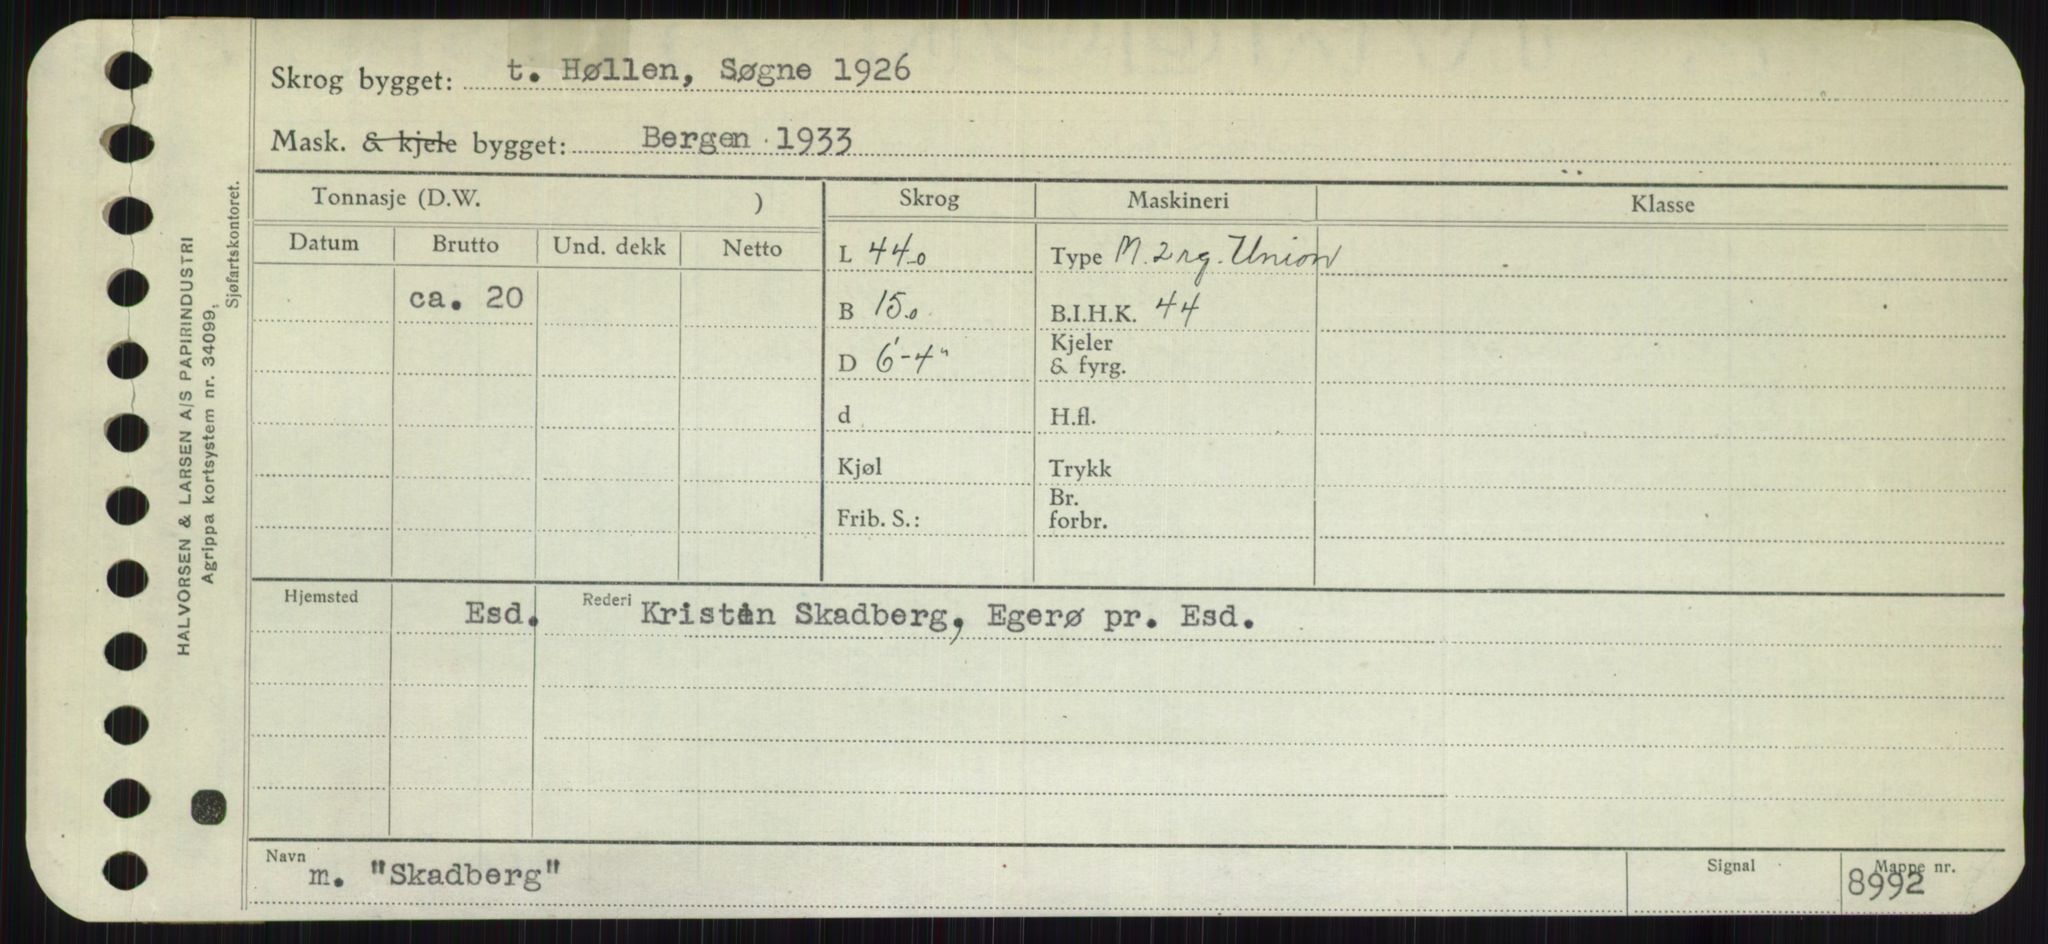 Skrog bygget: t. Høllen, Søgne 1926
Mask. & kjele bygget: Bergen 1933
Tonnasje (D.W. ) Skrog Maskineri Klasse
Datum Brutto Und. dekk Netto
L 44.0 Type M. 2 rg. Union
ca. 20 B 15.0 B.I.H.K. 44
D 6'-4" Kjeler
& fyrg.
d H.fl.
Kjøl Trykk
Frib. S.: Br.
forbr.
Hjemsted Esd. Rederi Kristin Skadberg, Egerø pr. Esd.
Navn m. "Skadberg" Signal Mappe nr. 8992
HALVORSEN & LARSEN A/S PAPIRINDUSTRI
Agrippa kortsystem nr. 34099.
Sjøfartskontoret.